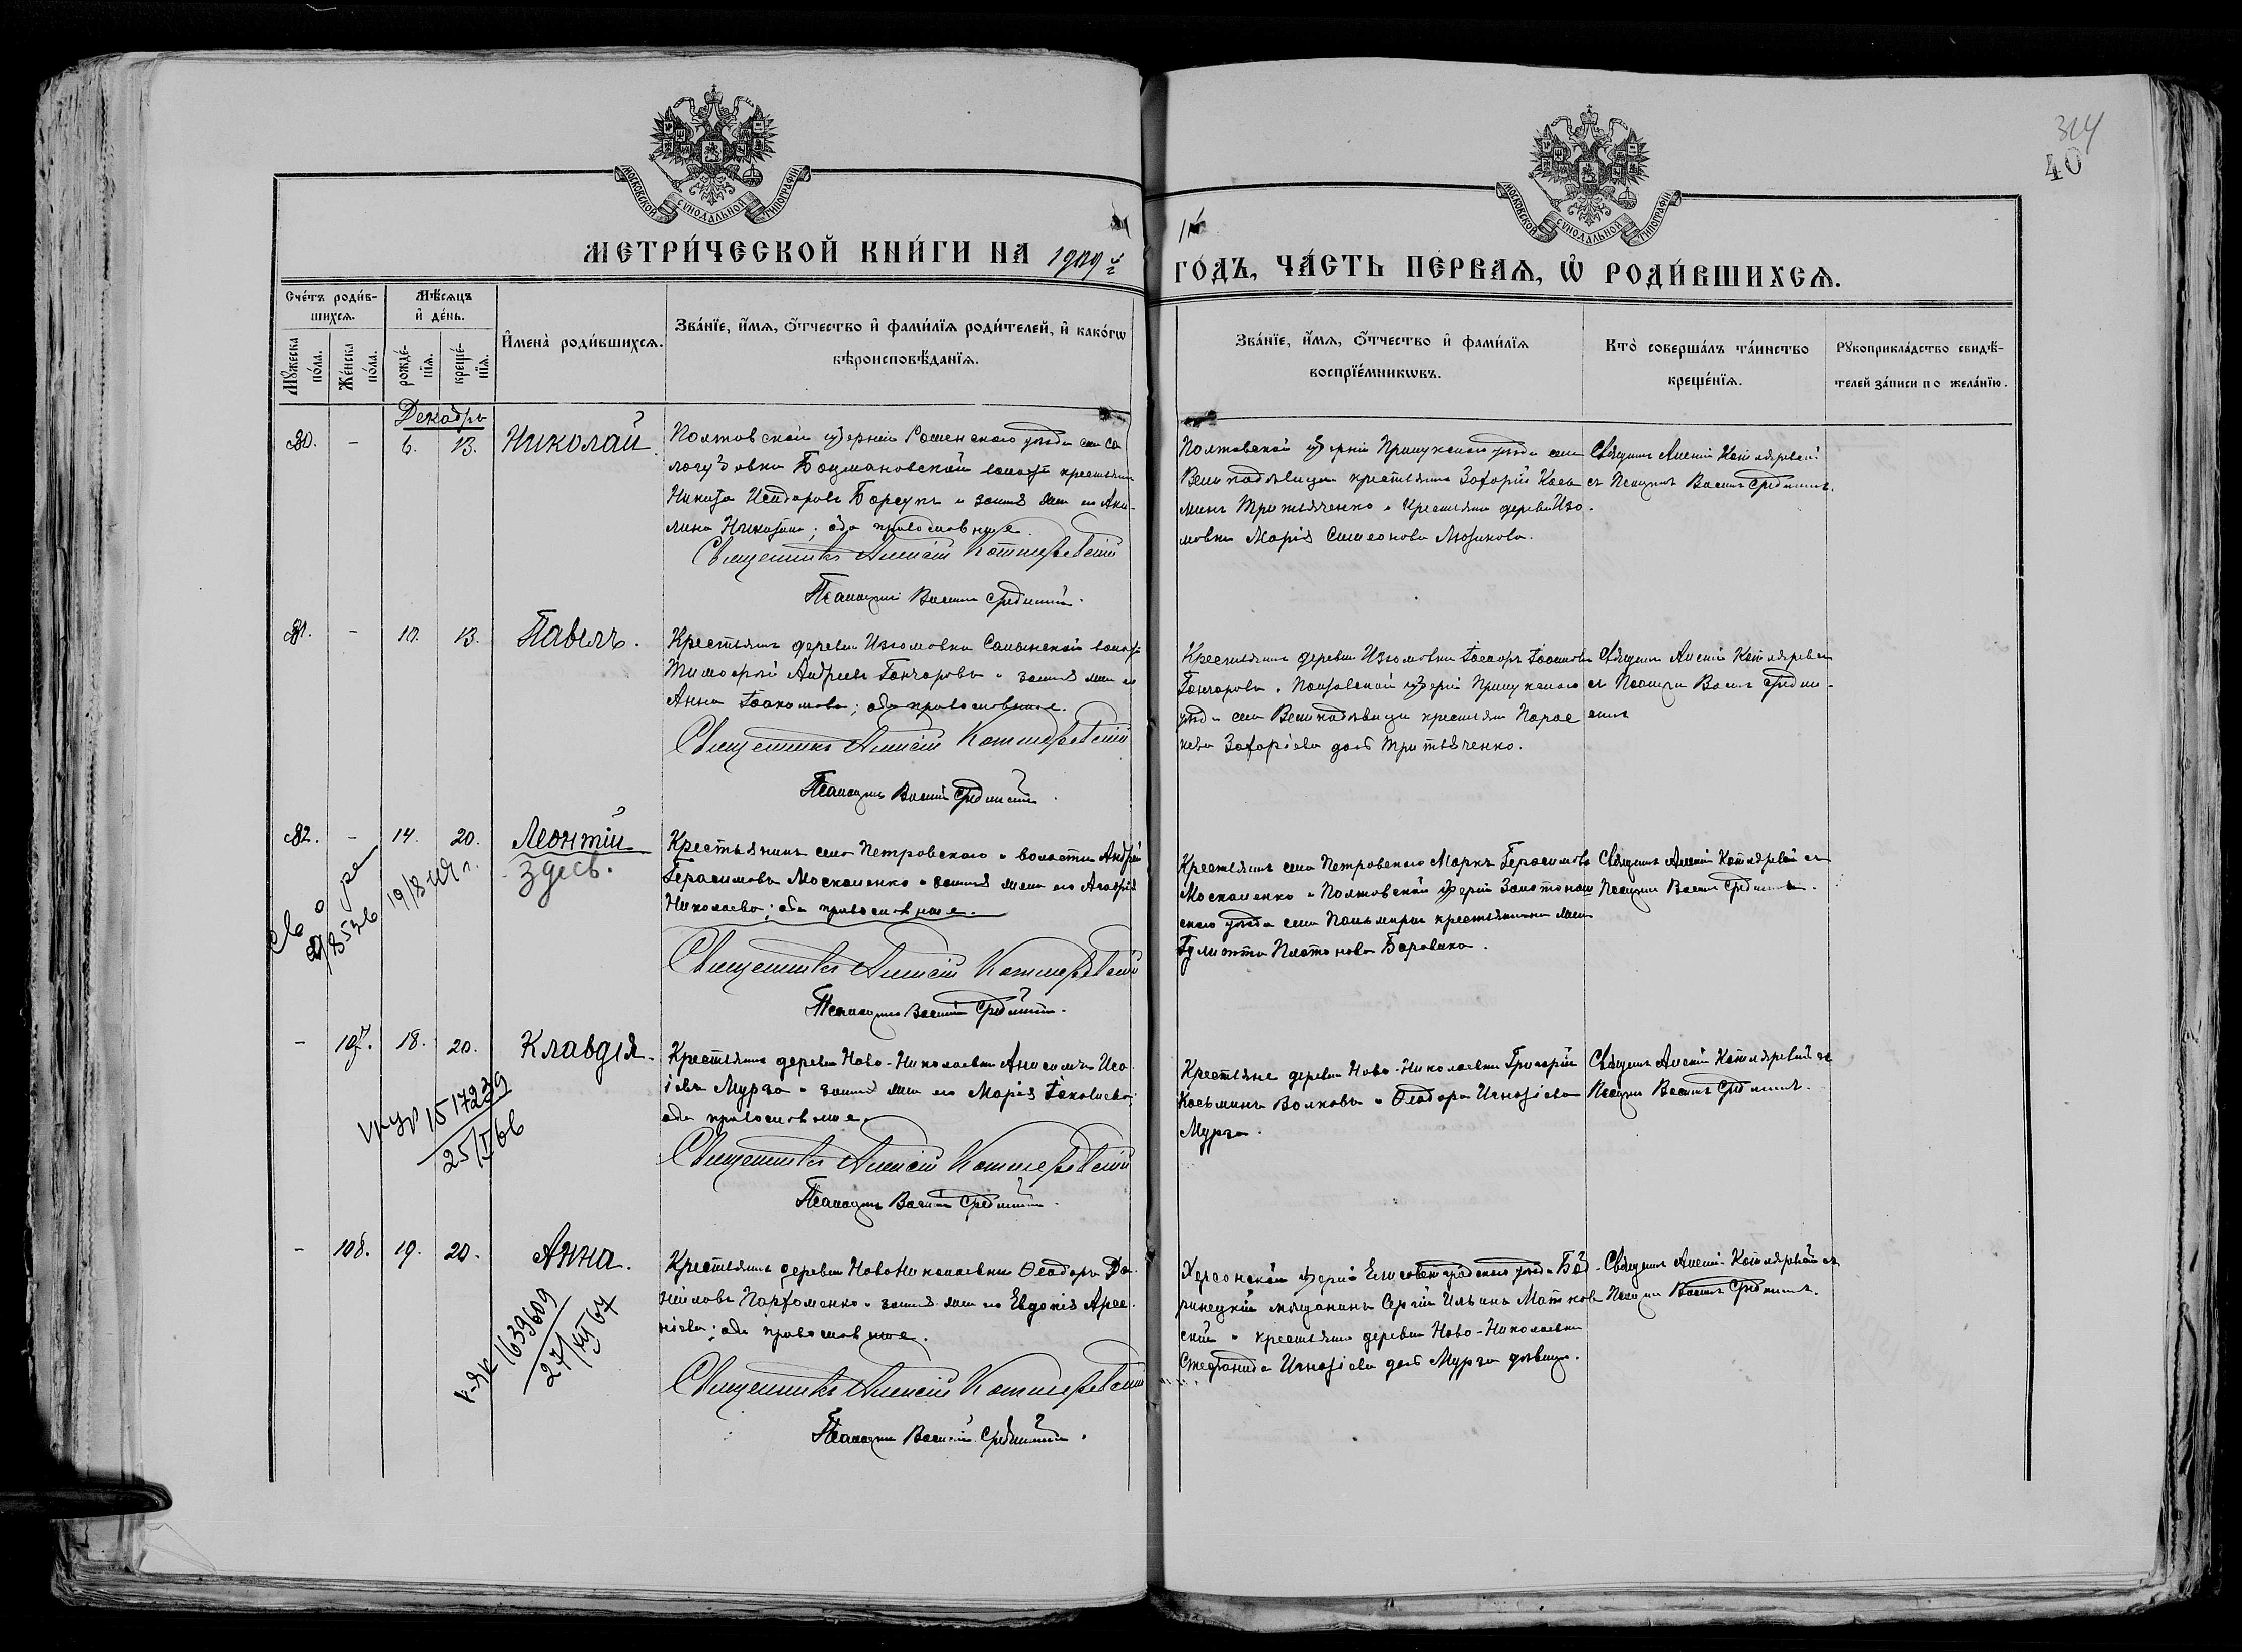 314
40
МОСКОВСКОЙ СѴНОДАЛЬНОЙ ТИПОГРАФІИ
МОСКОВСКОЙ СѴНОДАЛЬНОЙ ТИПОГРАФІИ
МЕТРИ́ЧЕСКОЙ КНИ́ГИ НА 1909й
ГО́ДЪ, ЧА́СТЬ ПЕ́РВАѦ, Ѡ҆ РОДИ́ВШИХСѦ.
Сче́тъ роди́в-
шихсѧ.
Мꙋ́жеска по́ла.
Же́нска по́ла.
Мѣ́сѧцъ
и҆ де́нь.
рожде́-
нїѧ.
креще́-
нїѧ.
И҆мена̀ роди́вшихсѧ.
Зва́нїе, и҆́мѧ, ѻ҆́тчество и҆ фами́лїѧ роди́телей, и҆ како́гѡ
вѣроисповѣ́данїѧ.
Зва́нїе, и҆́мѧ, ѻ҆́тчество и҆ фами́лїѧ
воспрїе́мникѡвъ.
Кто̀ соверша́лъ та́инство
креще́нїѧ.
Рꙋкоприкла́дство свидѣ́-
телей за́писи по жела́нїю.
Декабрь
80. - 6. 13. Николай.
Полтовской губерніи Роменского уезда села
Бацмановской волости крестьянинъ
Никита Исидоровъ Барсукъ и законная жена его Аки-
лина Никитина; оба православные.
Священникъ Алексій Котляревскій
Псаломщикъ Василій
Полтовской губерніи Прилукского уезда села
крестьянинъ Захарій Кось
минъ Тритьяченко и крестьянка деревни Изю-
мовки Марія Симеонова
Священникъ Алексій Котляревскій
съ Псаломщ. Василіемъ
81. - 10. 13. Павелъ.
Крестьянинъ деревни Изюмовки волости
Тимофей Андреевъ Гончаровъ и законная жена его
Анна; оба православные.
Священникъ Алексій Котляревскій
Псаломщикъ Василій
Крестьянинъ деревни Изюмовки
Гончаровъ и Полтовской губерніи Прилукского
уезда села крестьянка Парас
кева Захаріева дочь Тритьяченко.
Священникъ Алексій Котляревскій
съ Псаломщ. Василіемъ
82. - 14. 20. Леонтій
здесь.
19/8
Крестьянинъ села Петровского и волости Андрей
Герасимовъ Москаленко и законная жена его Агафія
Николаева; оба православные.
Священникъ Алексій Котляревскій
Псаломщикъ Василій
Крестьянинъ села Петровского Маркъ Герасимовъ
Москаленко и Полтовской губерніи Золотонош
ского уезда села Пальмиры крестьянская жена
Гулитта Платонова Боровика.
Священникъ Алексій Котляревскій съ
Псаломщ. Василіемъ
- 107. 18. 20. Клавдія.
151723
25/I 66
Крестьянинъ деревни Ново-Николаевки Анисимъ Иса-
іевъ Мурза и законная жена его Марія Іаковлева;
оба православные.
Священникъ Алексій Котляревскій
Псаломщикъ Василій
Крестьяне деревни Ново-Николаевки Григорій
Косьминъ Волковъ и Ѳеодора Игнатіева
Мурза.
Священникъ Алексій Котляревскій съ
Псаломщ. Василіемъ
- 108. 19. 20. Анна.
1639609
27/VII 67
Крестьянинъ деревни Ново Николаевки Ѳеодоръ Да-
ниловъ Пархоменко и законная жена его Евдокія Арсе-
ніева; оба православные.
Священникъ Алексій Котляревскій
Псаломщикъ Василій
Херсонской губерніи Елисаветградского уезда Боб-
ринецкій мещанинъ Сергій Ильинъ Матков
скій и крестьянка деревни Ново-Николаевки
Стефанида Игнатіева дочь Мурза девица.
Священникъ Алексій Котляревскій съ
Псаломщ. Василіемъ